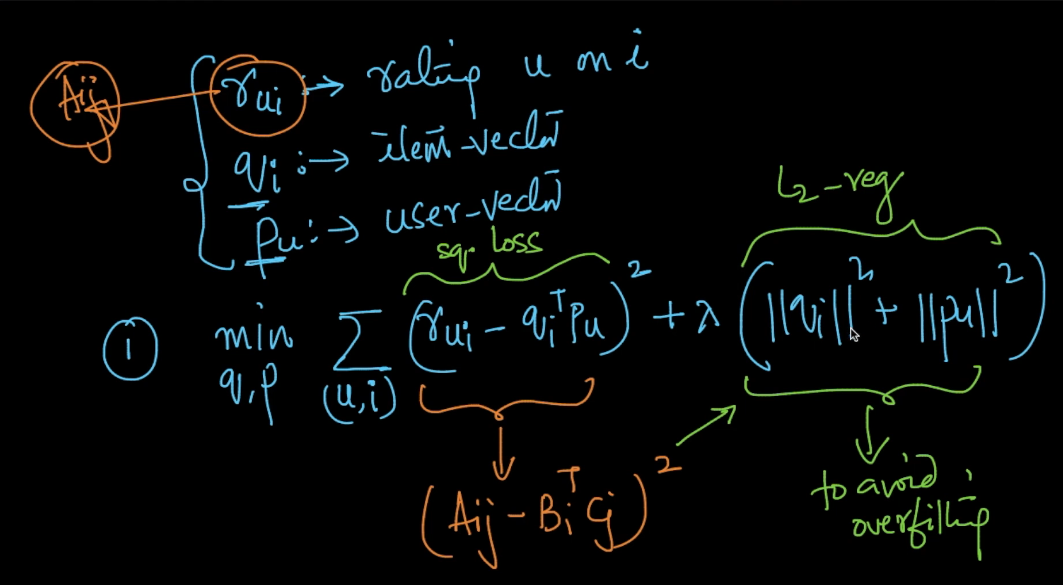 Aij
rui :→ rating u on i
qi :→ item-vector
pu :→ user-vector
sq. loss
L2-reg
① min q,p Σ (u,i) (rui - qiᵀpu)² + λ (||qi||² + ||pu||²)
(Aij - Biᵀ Cj)²
to avoid
overfitting